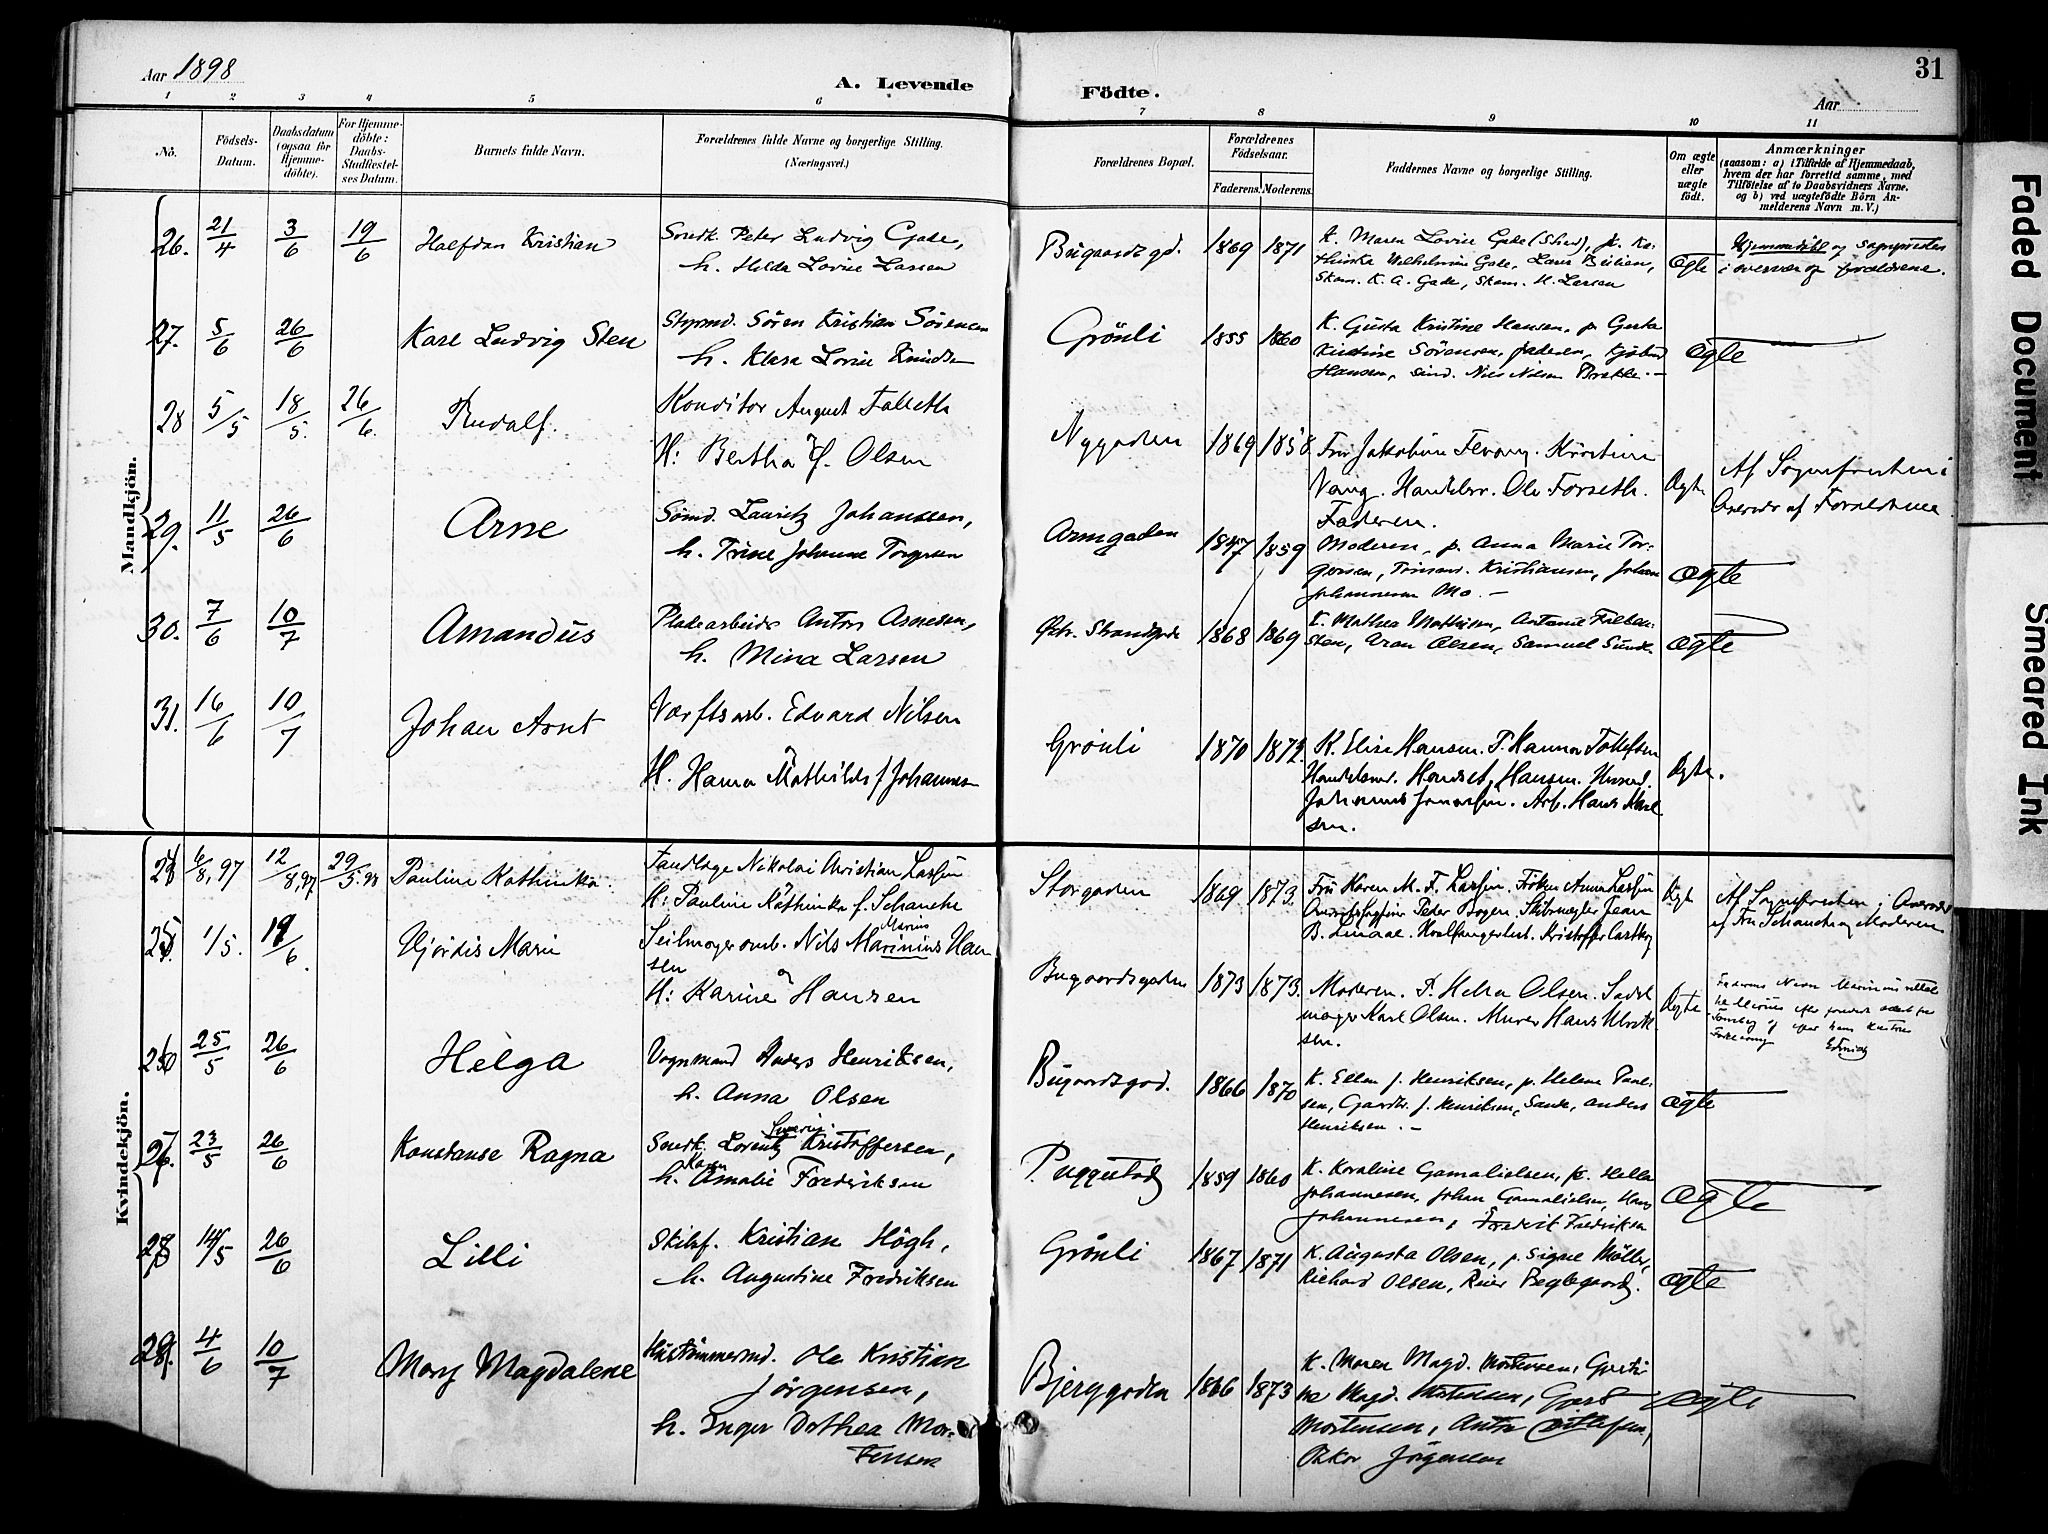 Aar 1898
A. Levende
Födte.
Aar
31
1 2 3 4 5 6 7 8 9 10 11
No.
Födsels-
Datum.
Daabsdatum
(ogsaa for
Hjemme-
döbte).
For Hjemme-
döbte:
Daabs-
Stadfæstel-
ses Datum.
Barnets fulde Navn.
Forældrenes fulde Navne og borgerlige Stilling.
(Næringsvei.)
Forældrenes Bopæl.
Forældrenes
Födselsaar.
Faderens. Moderens.
Faddernes Navne og borgerlige Stilling.
Om ægte
eller
uægte
født.
Anmærkninger
(saasom: a) i Tilfælde af Hjemmedaab,
hvem der har forrettet samme, med
Tilföielse af to Daabsvidners Navne.
og b) ved uægtefödte Börn An-
melderens Navn m. V.)
Mandkjön.
26. 21/4 3/6 19/6 Halfdan Kristian
Smedk. Peter Ludvig Gade,
h. Hilda Lovise Larsen
Bugaardsgd. 1869 1871
K. Maren Lovise Gade
Wilhelmine Gade,
K. A. Gade, H. Larsen
ægte
Hjemmedöbt af sognepresten
i overvær af forældrene.
27. 5/6 26/6 Karl Ludvig Sten
Styrmd. Sören Kristian Sörensen
h. Klara Lovise Knudsen
Grönli 1855 1860
K. Gusta Kristine Hansen, p. Gusta
Kristine Sörensen, faderen,
Hansen, Nils Nilsen
ægte
28 5/5 18/5. 26/6. Rudolf.
Konditor August Falleth
H: Bertha f. Olsen
Nygaden 1869 1858
Fru Jakobine Kristine
Handelsr. Ole Forseth.
Faderen.
Ægte
Af Sognepresten i
Overvær af Forældrene
29. 11/5 26/6 Arne
Sömd. Lauritz Johanssen,
h. Trine Johanne Torgersen
1847 1859
Moderen, p. Anna Marie Tor-
gersen, Kristiansen, Johan
Johannesen Mo. —
ægte
30. 7/6 10/7 Amandus
Pladearbeider Anton Arnesen,
h. Mina Larsen
1868 1869
K. Mathea Mathisen,
Aron Olsen, Samuel
ægte
31. 16/6 10/7 Johan Arnt
Værftsarb. Edvard Nilsen
H. Hanna Mathilde f Johannes-
Grönli 1870 1872.
K. Elise Hansen. P. Hanna Tollefsen
Handelsmd. Hansen.
Johannes Arb. Hans Karl-
sen.
Ægte.
Kvindekjön.
24 6/8, 97 12/8, 97 29/5. 98 Pauline Kathinka.
Tandlæge Nikolai Christian Lassen
H: Pauline Kathinka f. Schanche
Storgaden 1869 1873.
Fru Karen M. F. Lassen. Fröken Anna Lassen
Peder Bogen.
Ægte
Af Sognepresten i Overvær
af Fru Schanche og Moderen
25. 1/5. 19/6. Hjördis Marie
Marius
Seilmagerarb. Nils Marinius Han-
sen
H: Karine Hansen
Bugaardsgaden 1873 1873.
Moderen. P. Helra Olsen. Sadel-
mager Karl Olsen. Murer Hans Ulrik-
sen.
Ægte
Faderens Navn Marinius rettet
til Marius efter
26 25/5 26/6 Helga
Vognmand Anders Henriksen,
h. Anna Olsen
Bugaardsgad. 1866 1870
K. Ellen f. Henriksen, p. Helene Paul-
sen, f. Henriksen, Sande, Anders
Henriksen. —
ægte
27. 23/5 26/6 Konstanse Ragna
Smedk. Lorentz Kristoffersen,
Karen
h. Amalie Fredriksen
Puggestad 1859 1860
K. Karoline Gamalielsen, p. Hella
Johannesen, Johan Gamalielsen, Hans
Johannesen, Fredrik Fredriksen
ægte
28 14/5 26/6 Lilli
Skibsf. Kristian Högh,
h. Augustine Fredriksen
Grönli 1867 1871
K. Augusta Olsen, p. Signe Möller,
Richard Olsen, Reier
ægte
29. 4/6 10/7 Mary Magdalene
Hustömmermd. Ole Kristian
Jörgensen,
h. Inger Dorthea Mor-
tensen
Bjerggaden 1866 1873
K. Maren Magd. Mortensen,
Magd. Mortensen,
Mortensen, Anton
Oskar Jörgensen
ægte
Faded Document
Smeared Ink